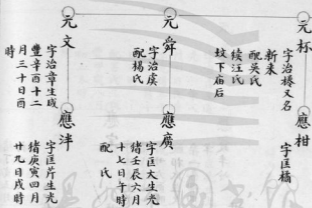 元杯
字治椿又名
新来
配吴氏
续汪氏
蚊下庙后
應柑
字匡橘
元舜
字治虞
配楊氏
應廣
字匡大生光
緒壬辰六月
十七日午時
配 氏
元文
字治章生咸
豐辛酉十二
月三十日酉
時
應泮
字匡芹生光
緒庚寅四月
廿九日戌時